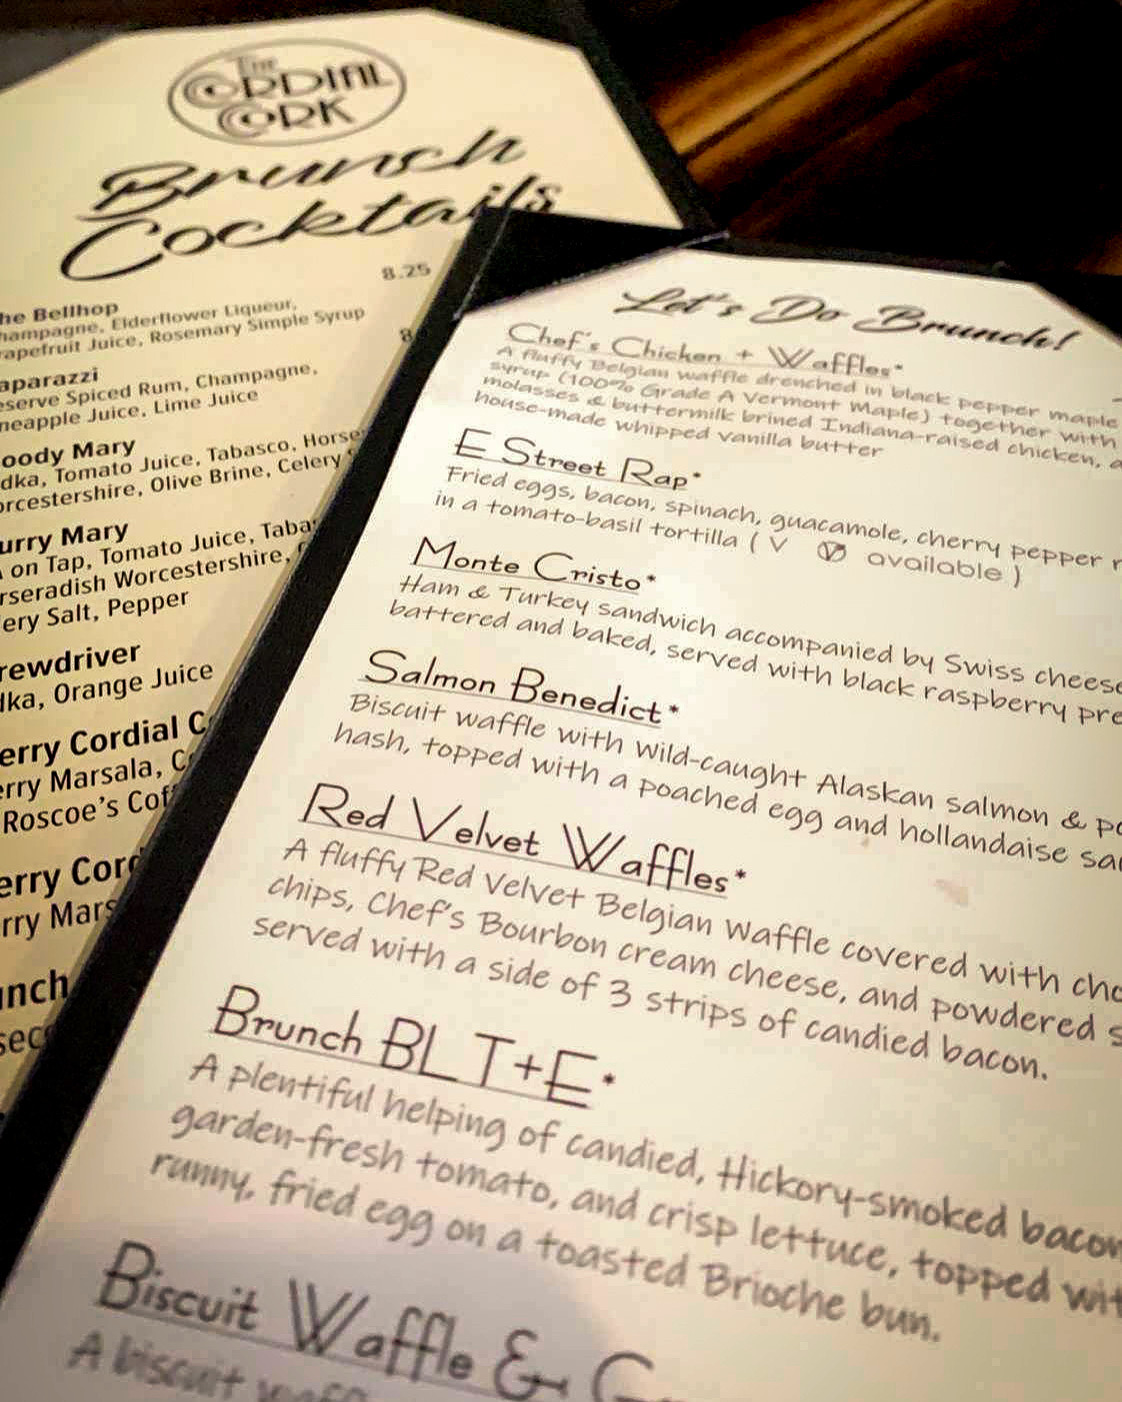 The
Cordial
Cork
Brunch
Cocktails
8.25
he Bellhop
hampagne, Elderflower Liqueur,
rapefruit Juice, Rosemary Simple Syrup
8
aparazzi
eserve Spiced Rum, Champagne,
neapple Juice, Lime Juice
oody Mary
dka, Tomato Juice, Tabasco, Horse
orcestershire, Olive Brine, Celery
urry Mary
on Tap, Tomato Juice, Taba
rseradish Worcestershire,
ery Salt, Pepper
rewdriver
dka, Orange Juice
erry Cordial C
erry Marsala, C
Roscoe's Cof
erry Cord
rry Mars
unch
sec
Let's Do Brunch!
Chef's Chicken + Waffles*
A fluffy Belgian waffle drenched in black pepper maple
syrup (100% Grade A Vermont Maple) together with
molasses & buttermilk brined Indiana-raised chicken, a
house-made whipped vanilla butter
E Street Rap*
Fried eggs, bacon, spinach, guacamole, cherry pepper r
in a tomato-basil tortilla ( V Ⓥ available )
Monte Cristo*
Ham & Turkey sandwich accompanied by Swiss cheese
battered and baked, served with black raspberry pre
Salmon Benedict*
Biscuit waffle with wild-caught Alaskan salmon & po
hash, topped with a poached egg and hollandaise sau
Red Velvet Waffles*
A fluffy Red Velvet Belgian Waffle covered with cho
chips, Chef's Bourbon cream cheese, and powdered s
served with a side of 3 strips of candied bacon.
Brunch BLT+E*
A plentiful helping of candied, Hickory-smoked bacon
garden-fresh tomato, and crisp lettuce, topped wit
runny, fried egg on a toasted Brioche bun.
Biscuit Waffle & G
A biscuit waff